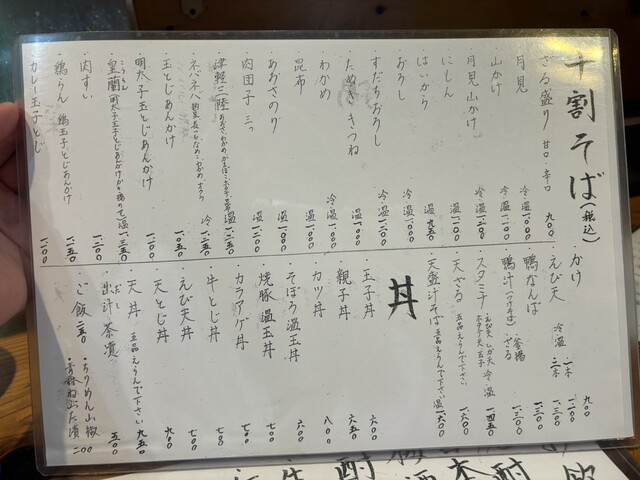 十割そば（税込）
ざる盛り 甘口・辛口 九〇〇
・月見 冷温 一〇〇〇
・山かけ 冷温 一一〇〇
・月見山かけ 冷温 一二〇〇
・にしん 温 一一〇〇
・はいから 温 九五〇
・おろし 冷温 一〇〇〇
・すだちおろし 冷温 一一〇〇
・たぬき きつね 温 一〇〇〇
・わかめ 冷温 一〇〇〇
・昆布 温 一〇〇〇
・あおさのり 温 一〇〇〇
・肉団子 三つ 温 一一〇〇
・津軽三陸 温 一二五〇
・ネバネバ 冷 一二五〇
・玉とじあんかけ 一〇五〇
・明太子玉とじあんかけ 一一〇〇
・皇蘭 明太子玉とじあんかけ 温 一三五〇
・肉すい 一二〇〇
・鶏らん 鶏玉子とじあんかけ 一一五〇
・カレー玉子とじ 一一〇〇
・かけ 九〇〇
・えび天 冷温 一本 一一〇〇 二本 一三〇〇
・鴨なんば 一三〇〇
・鴨汁（つけそば）ざる・釜揚 一三〇〇
・スタミナ えび天 いか天 玉子 冷温 一四五〇
・天ざる 五品えらんで下さい 一六〇〇
・天盛汁そば 五品えらんで下さい 温 一六〇〇
丼
・玉子丼 六〇〇
・親子丼 六五〇
・カツ丼 八〇〇
・そぼろ温玉丼 六〇〇
・焼豚温玉丼 七〇〇
・カラアゲ丼 七〇〇
・牛とじ丼 七〇〇
・えび天丼 七〇〇
・天とじ丼 九〇〇
・天丼 五品えらんで下さい 九五〇
・出汁茶漬 五〇〇
・ご飯 二五〇
・ちりめん山椒 二〇〇